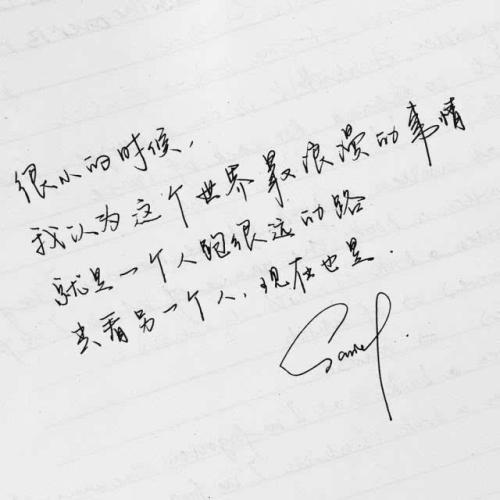 很小的时候，
我认为这个世界最浪漫的事情
就是一个人跑很远的路
去看另一个人，现在也是．